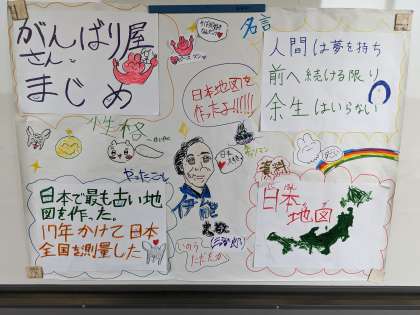 がんばり屋
さん、
まじめ
名言
人間は夢を持ち
前へ続ける限り
余生はいらない
日本地図を
作ったよ!!!!!
性格
やったこと
日本で最も古い地
図を作った。
17年かけて日本
全国を測量した
伊能
忠敬
いのう
ただたか
資料
日本
地図